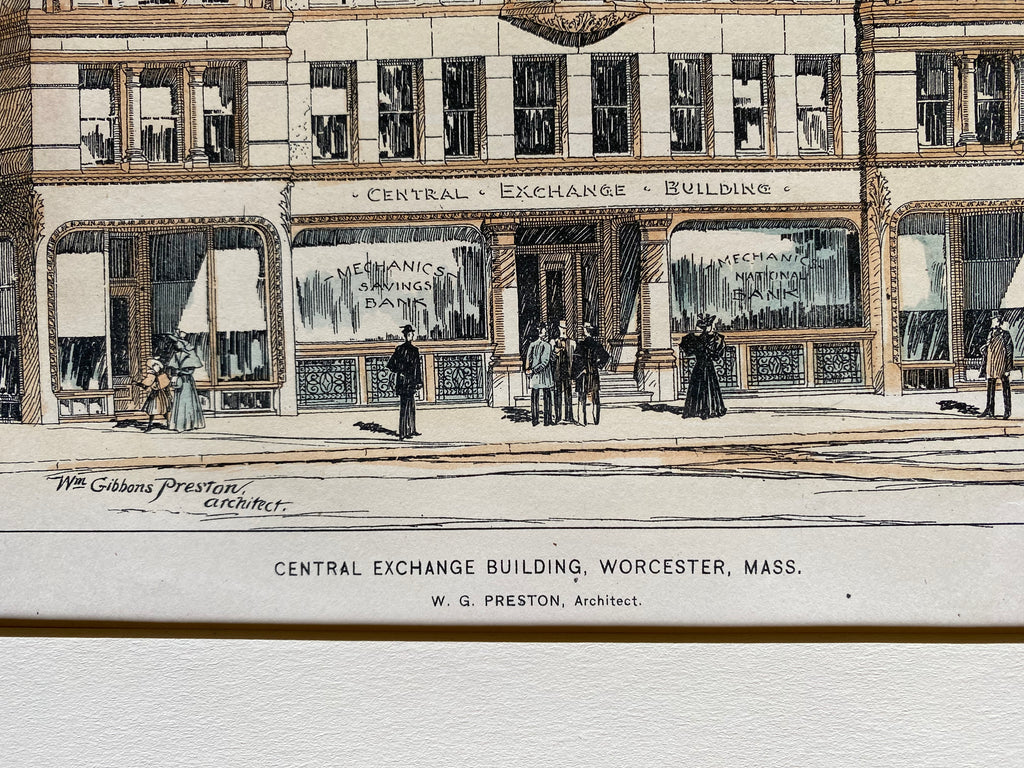 · CENTRAL · EXCHANGE · BUILDING ·
MECHANICS
SAVINGS
BANK
MECHANICS
NATIONAL
BANK
Wm Gibbons Preston,
architect.
CENTRAL EXCHANGE BUILDING, WORCESTER, MASS.
W. G. PRESTON, Architect.